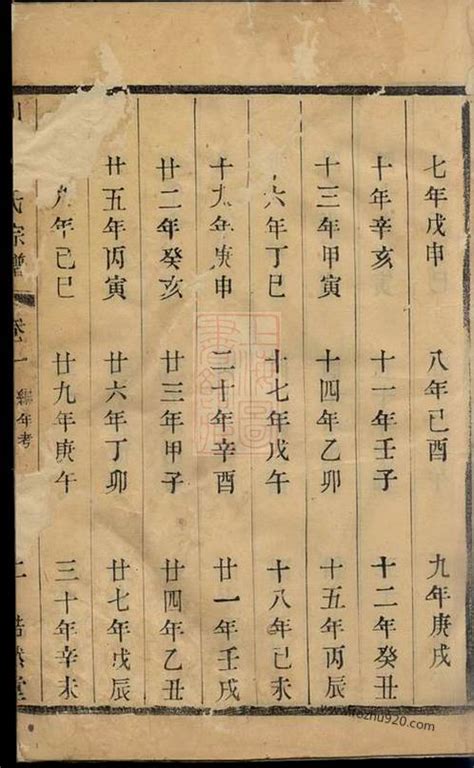 七年戊申　八年己酉　九年庚戌
十年辛亥　十一年壬子　十二年癸丑
十三年甲寅　十四年乙卯　十五年丙辰
六年丁巳　十七年戊午　十八年己未
十九年庚申　二十年辛酉　廿一年壬戌
廿二年癸亥　廿三年甲子　廿四年乙丑
廿五年丙寅　廿六年丁卯　廿七年戊辰
年己巳　廿九年庚午　三十年辛未
氏宗譜　卷一　編年考　浩然堂